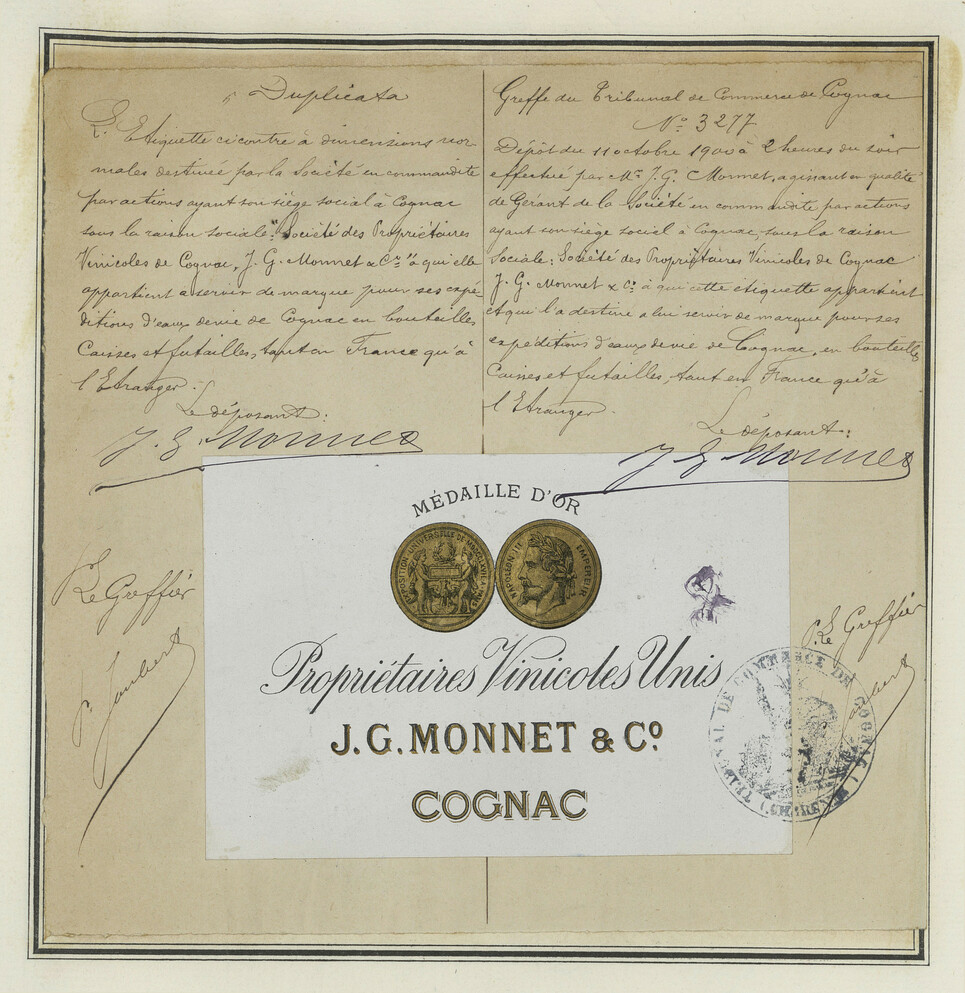 Duplicata
Etiquette ci contre à dimensions nor-
males destinée par la Société en commandite
par actions ayant son siège social à Cognac
sous la raison sociale: "Société des Propriétaires
Vinicoles de Cognac, J. G. Monnet & Cie" à qui elle
appartient a servir de marque pour ses expé-
ditions d'eaux de vie de Cognac en bouteilles
Caisses et futailles, tant en France qu'à
l'Etranger.
Le déposant:
J. G. Monnet
Le Greffier
Joubert
Greffe du Tribunal de Commerce de Cognac
No 3277
Dépôt du 11 octobre 1900 à 2 heures du soir
effectué par Mr J. G. Monnet, agissant en qualité
de Gérant de la Société en commandite par actions
ayant son siège social à Cognac, sous la raison
Sociale: Société des Propriétaires Vinicoles de Cognac
J. G. Monnet & Co à qui cette étiquette appartient
et qui l'a destine a lui servir de marque pour ses
expéditions d'eaux de vie de Cognac, en bouteilles
Caisses et futailles, tant en France qu'à
l'Etranger.
Le déposant:
J. G. Monnet
Le Greffier
MÉDAILLE D'OR
EXPOSITION UNIVERSELLE DE MDCCCLXVII A PARIS
NAPOLEON III EMPEREUR
Propriétaires Vinicoles Unis
J.G. MONNET & Co
COGNAC
TRIBUNAL DE COMMERCE DE COGNAC (CHARENTE)